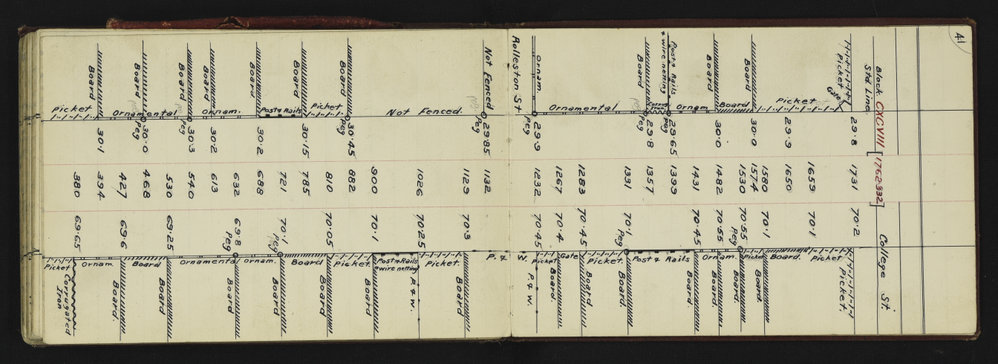 41
Block CXCVIII [1762.332] College St.
Std Line
Picket Gate 29.8 1731 70.2 Picket.
Picket
1659 70.1 Picket
Picket 29.9 1650
Board.
Board 30.0 1580 70.1 Board.
1574 Picket
1530 70.55 Peg Board.
Board
Board 30.0 1482 70.55 Board.
Ornam.
Ornam 1431 70.45 Board.
Posts Rails & wire netting 29.65 Peg 1399
Board 29.8 Peg 1357
Post & Rails
1331 70.1 Peg Board.
Ornamental
Picket.
1283 70.45 Board
Gate
1267 70.4
Picket
Ornam. 29.9 Peg 1232 70.45 P. & W.
Rolleston St
P. & W.
Not Fenced 29.85 Peg 1132
1129 70.3 Board
Not Fenced
Picket.
1026 70.25 P. & W.
Post & Rails & wire netting
900 70.1 Board
Board 30.45 Peg 882
Picket
Picket
810 70.05 Board
Board 30.15 785
Post & Rails
Board
721 70.1 Peg Board
Board 30.2 688
Ornam.
632 69.8 Peg Board
Ornam.
Board 30.2 613
Ornamental
Board 30.3 Peg 540
530 69.25 Board
Board 30.0 Peg 468
Board
Ornamental
427 69.6 Board
Board 30.1 394
Ornam
Picket
380 69.65 Corrugated Iron
Picket